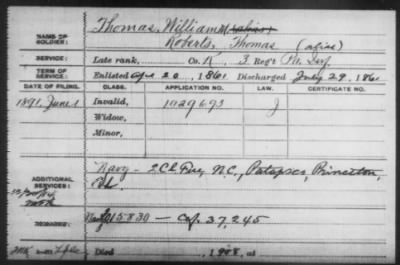 NAME OF SOLDIER: Thomas, William M (alias)
Roberts, Thomas (alias)
SERVICE: Late rank, Co. K, 3 Reg't Pa. Inf.
TERM OF SERVICE: Enlisted Apr. 20, 1861 Discharged July 29, 1861
DATE OF FILING. CLASS. APPLICATION NO. LAW. CERTIFICATE NO.
1891, June 1 Invalid, 1029693 J
Widow,
Minor,
ADDITIONAL SERVICES: Navy - 2 Cl. Fire, N.C., Patapsco, Princeton,
REMARKS: 15830 - Cf. 37,245
Died , 1908, at